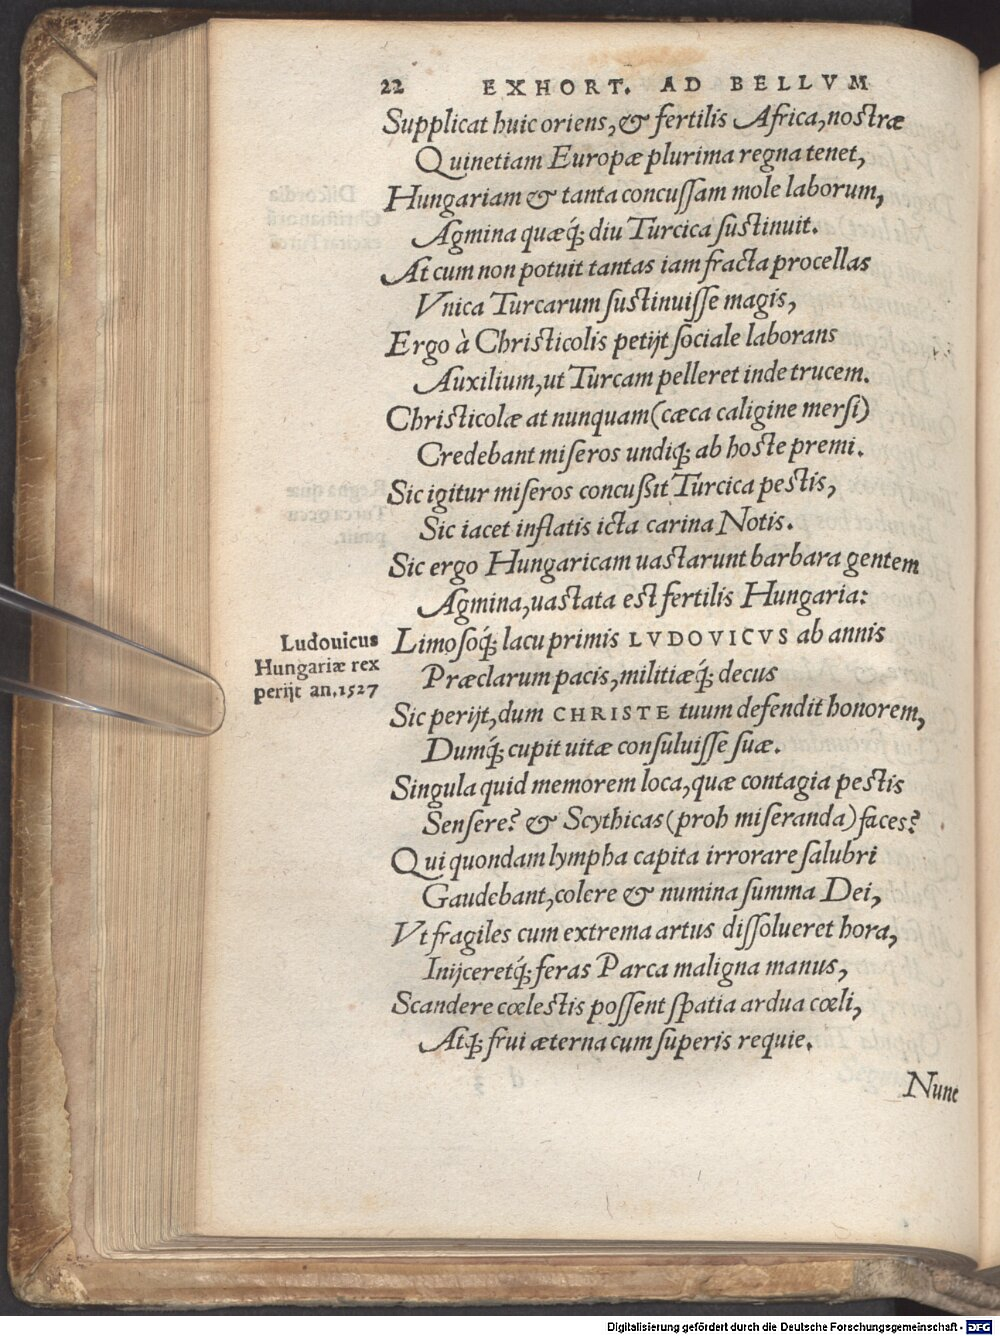 22 EXHORT. AD BELLVM
Supplicat huic oriens, & fertilis Africa, nostræ
Quinetiam Europæ plurima regna tenet,
Hungariam & tanta concussam mole laborum,
Agmina quæq́; diu Turcica sustinuit.
At cum non potuit tantas iam fracta procellas
Vnica Turcarum sustinuisse magis,
Ergo à Christicolis petijt sociale laborans
Auxilium, ut Turcam pelleret inde trucem.
Christicolæ at nunquam (cæca caligine mersi)
Credebant miseros undiq; ab hoste premi.
Sic igitur miseros concußit Turcica pestis,
Sic iacet inflatis icta carina Notis.
Sic ergo Hungaricam uastarunt barbara gentem
Agmina, uastata est fertilis Hungaria:
Ludouicus
Hungariæ rex
perijt an.1527
Limosoq́; lacu primis LVDOVICVS ab annis
Præclarum pacis, militiæq́; decus
Sic perijt, dum CHRISTE tuum defendit honorem,
Dumq́; cupit uitæ consuluisse suæ.
Singula quid memorem loca, quæ contagia pestis
Sensere? & Scythicas (proh miseranda) faces?
Qui quondam lympha capita irrorare salubri
Gaudebant, colere & numina summa Dei,
Vt fragiles cum extrema artus dissolueret hora,
Inijceretq́; feras Parca maligna manus,
Scandere cœlestis possent spatia ardua cœli,
Atq; frui æterna cum superis requie.
Nunc
Digitalisierung gefördert durch die Deutsche Forschungsgemeinschaft - DFG